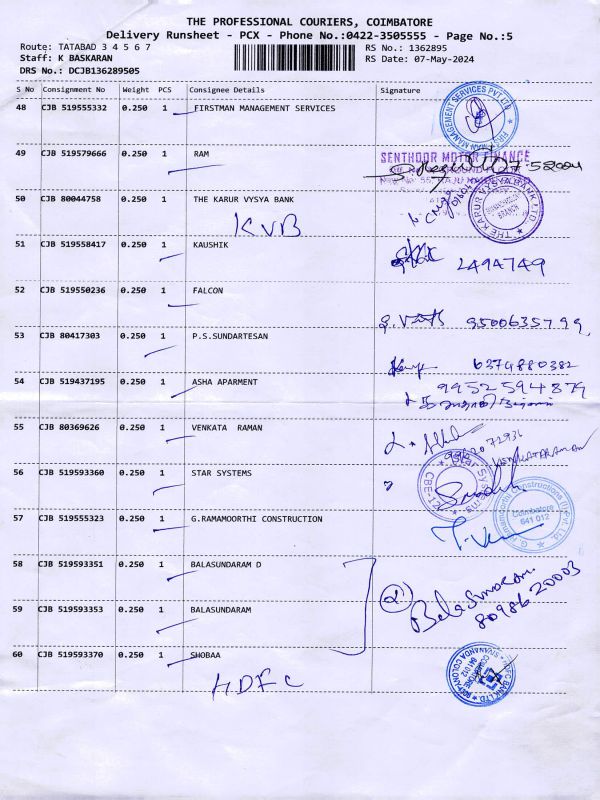 THE PROFESSIONAL COURIERS, COIMBATORE
Delivery Runsheet - PCX - Phone No.:0422-3505555 - Page No.:5
Route: TATABAD 3 4 5 6 7
RS No.: 1362895
Staff: K BASKARAN
RS Date: 07-May-2024
DRS No.: DCJB136289505
S No Consignment No Weight PCS Consignee Details Signature
48 CJB 519555332 0.250 1 FIRSTMAN MANAGEMENT SERVICES
49 CJB 519579666 0.250 1 RAM
SENTHOOR MOTOR FINANCE
50 CJB 80044758 0.250 1 THE KARUR VYSYA BANK
KVB
THE KARUR VYSYA BANK LTD
BRANCH
51 CJB 519558417 0.250 1 KAUSHIK
2494749
52 CJB 519550236 0.250 1 FALCON
9500635799
53 CJB 80417303 0.250 1 P.S.SUNDARTESAN
6374880382
54 CJB 519437195 0.250 1 ASHA APARMENT
9952594879
55 CJB 80369626 0.250 1 VENKATA RAMAN
VENKATARAMAN
56 CJB 519593360 0.250 1 STAR SYSTEMS
Star Systems
CBE-12
57 CJB 519555323 0.250 1 G.RAMAMOORTHI CONSTRUCTION
Coimbatore
641 012
58 CJB 519593351 0.250 1 BALASUNDARAM D
59 CJB 519593353 0.250 1 BALASUNDARAM
8098620003
60 CJB 519593370 0.250 1 SHOBAA
HDFC
HDFC BANK LTD
COIMBATORE
641 012